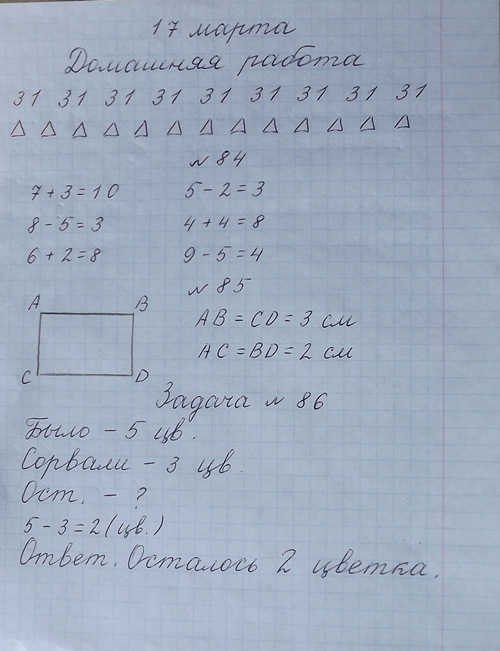 17 марта
Домашняя работа
31 31 31 31 31 31 31 31 31
№ 84
7 + 3 = 10 5 - 2 = 3
8 - 5 = 3 4 + 4 = 8
6 + 2 = 8 9 - 5 = 4
№ 85
A B
AB = CD = 3 см
AC = BD = 2 см
C D
Задача № 86
Было - 5 цв.
Сорвали - 3 цв.
Ост. - ?
5 - 3 = 2 (цв.)
Ответ. Осталось 2 цветка.